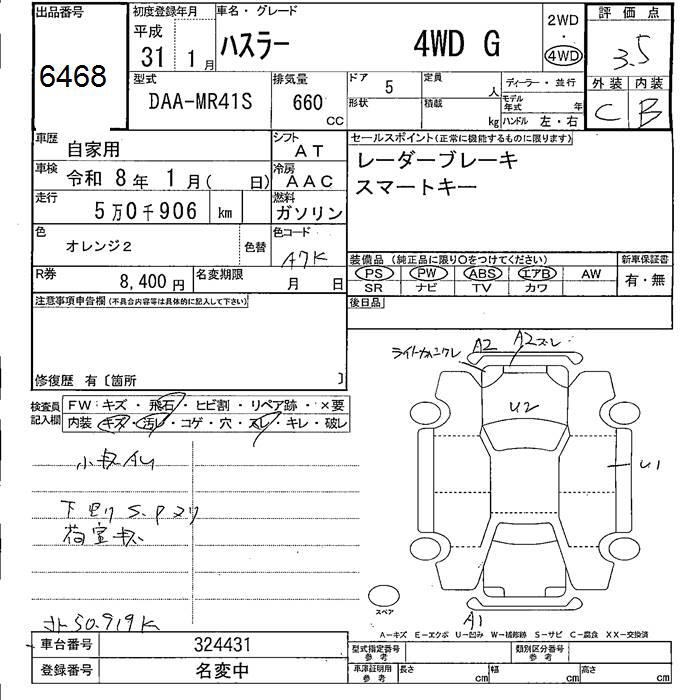 出品番号
6468
初度登録年月
平成
31年1月
車名・グレード
ハスラー 4WD G
2WD
・
4WD
評価点
3.5
外装 内装
C B
型式
DAA-MR41S
排気量
660
CC
ドア
5
形状
定員
人
積載
kg
ディーラー・並行
モデル年式
年
ハンドル 左・右
車歴
自家用
シフト
AT
車検
令和 8年 1月( 日)
冷房
AAC
走行
5万0千906 km
燃料
ガソリン
色
オレンジ2
色替
色コード
A7K
R券
8,400円
名変期限
月 日
セールスポイント(正常に機能するものに限ります)
レーダーブレーキ
スマートキー
装備品 (純正品に限り〇をつけてください)
新車保証書
PS PW ABS エアB AW
SR ナビ TV カワ
有・無
後日品
注意事項申告欄 (不具合内容等は具体的に記入して下さい)
修復歴 有〔箇所 〕
検査員
記入欄
FW:キズ・飛石・ヒビ割・リペア跡・×要
内装・キズ・汚レ・コゲ・穴・スレ・キレ・破レ
小キズAU
下廻り S.P
荷室キズ
50.919K
A2
A2スレ
U2
U1
A1
スペア
A-キズ E-エクボ U-凹み W-補修跡 S-サビ C-腐食 XX-交換済
車台番号
324431
登録番号
名変中
型式指定番号
参考
類別区分番号
参考
車庫証明用
参考
長さ
cm
幅
cm
高さ
cm